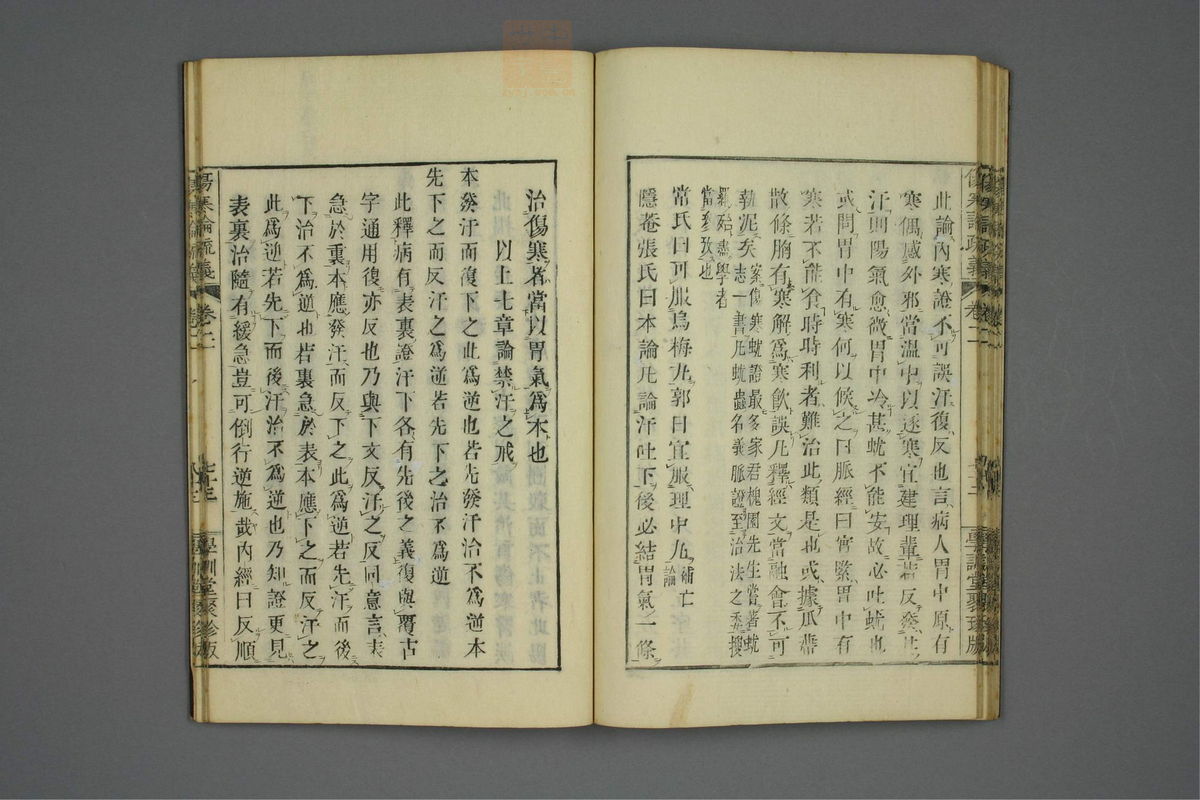 此論內寒證不可誤汗復反也言病人胃中原有
寒偶感外邪當溫中以逐寒宜建理輩若反發其
汗則陽氣愈微胃中冷甚蚘不能安故必吐蚘也
或問胃中有寒何以候之曰脈經曰實緊胃中有
寒若不能食時時利者難治此類是也或據瓜蒂
散條胸有寒解為寒飲誤凡釋經文當融會不可
執泥矣
案傷寒蚘證最多家君槐園先生嘗著蚘
志一書凡蚘蟲名義脈證至治法之委搜
羅殆盡學者
當參攷也
常氏曰可服烏梅丸郭曰宜服理中丸
補亡
論
隱菴張氏曰本論凡論汗吐下後必結胃氣一條
治傷寒者當以胃氣為本也
以上七章論禁汗之戒
本發汗而復下之此為逆也若先發汗治不為逆本
先下之而反汗之為逆若先下之治不為逆
此釋病有表裏證汗下各有先後之義復與覆古
字通用復亦反也乃與下文反汗之反同意言表
急於裏本應發汗而反下之此為逆若先汗而後
下治不為逆也若裏急於表本應下之而反汗之
此為逆若先下而後汗治不為逆也乃知證更見
表裏治隨有緩急豈可倒行逆施哉內經曰反順
傷寒論疏義
卷二
學訓堂聚珍版